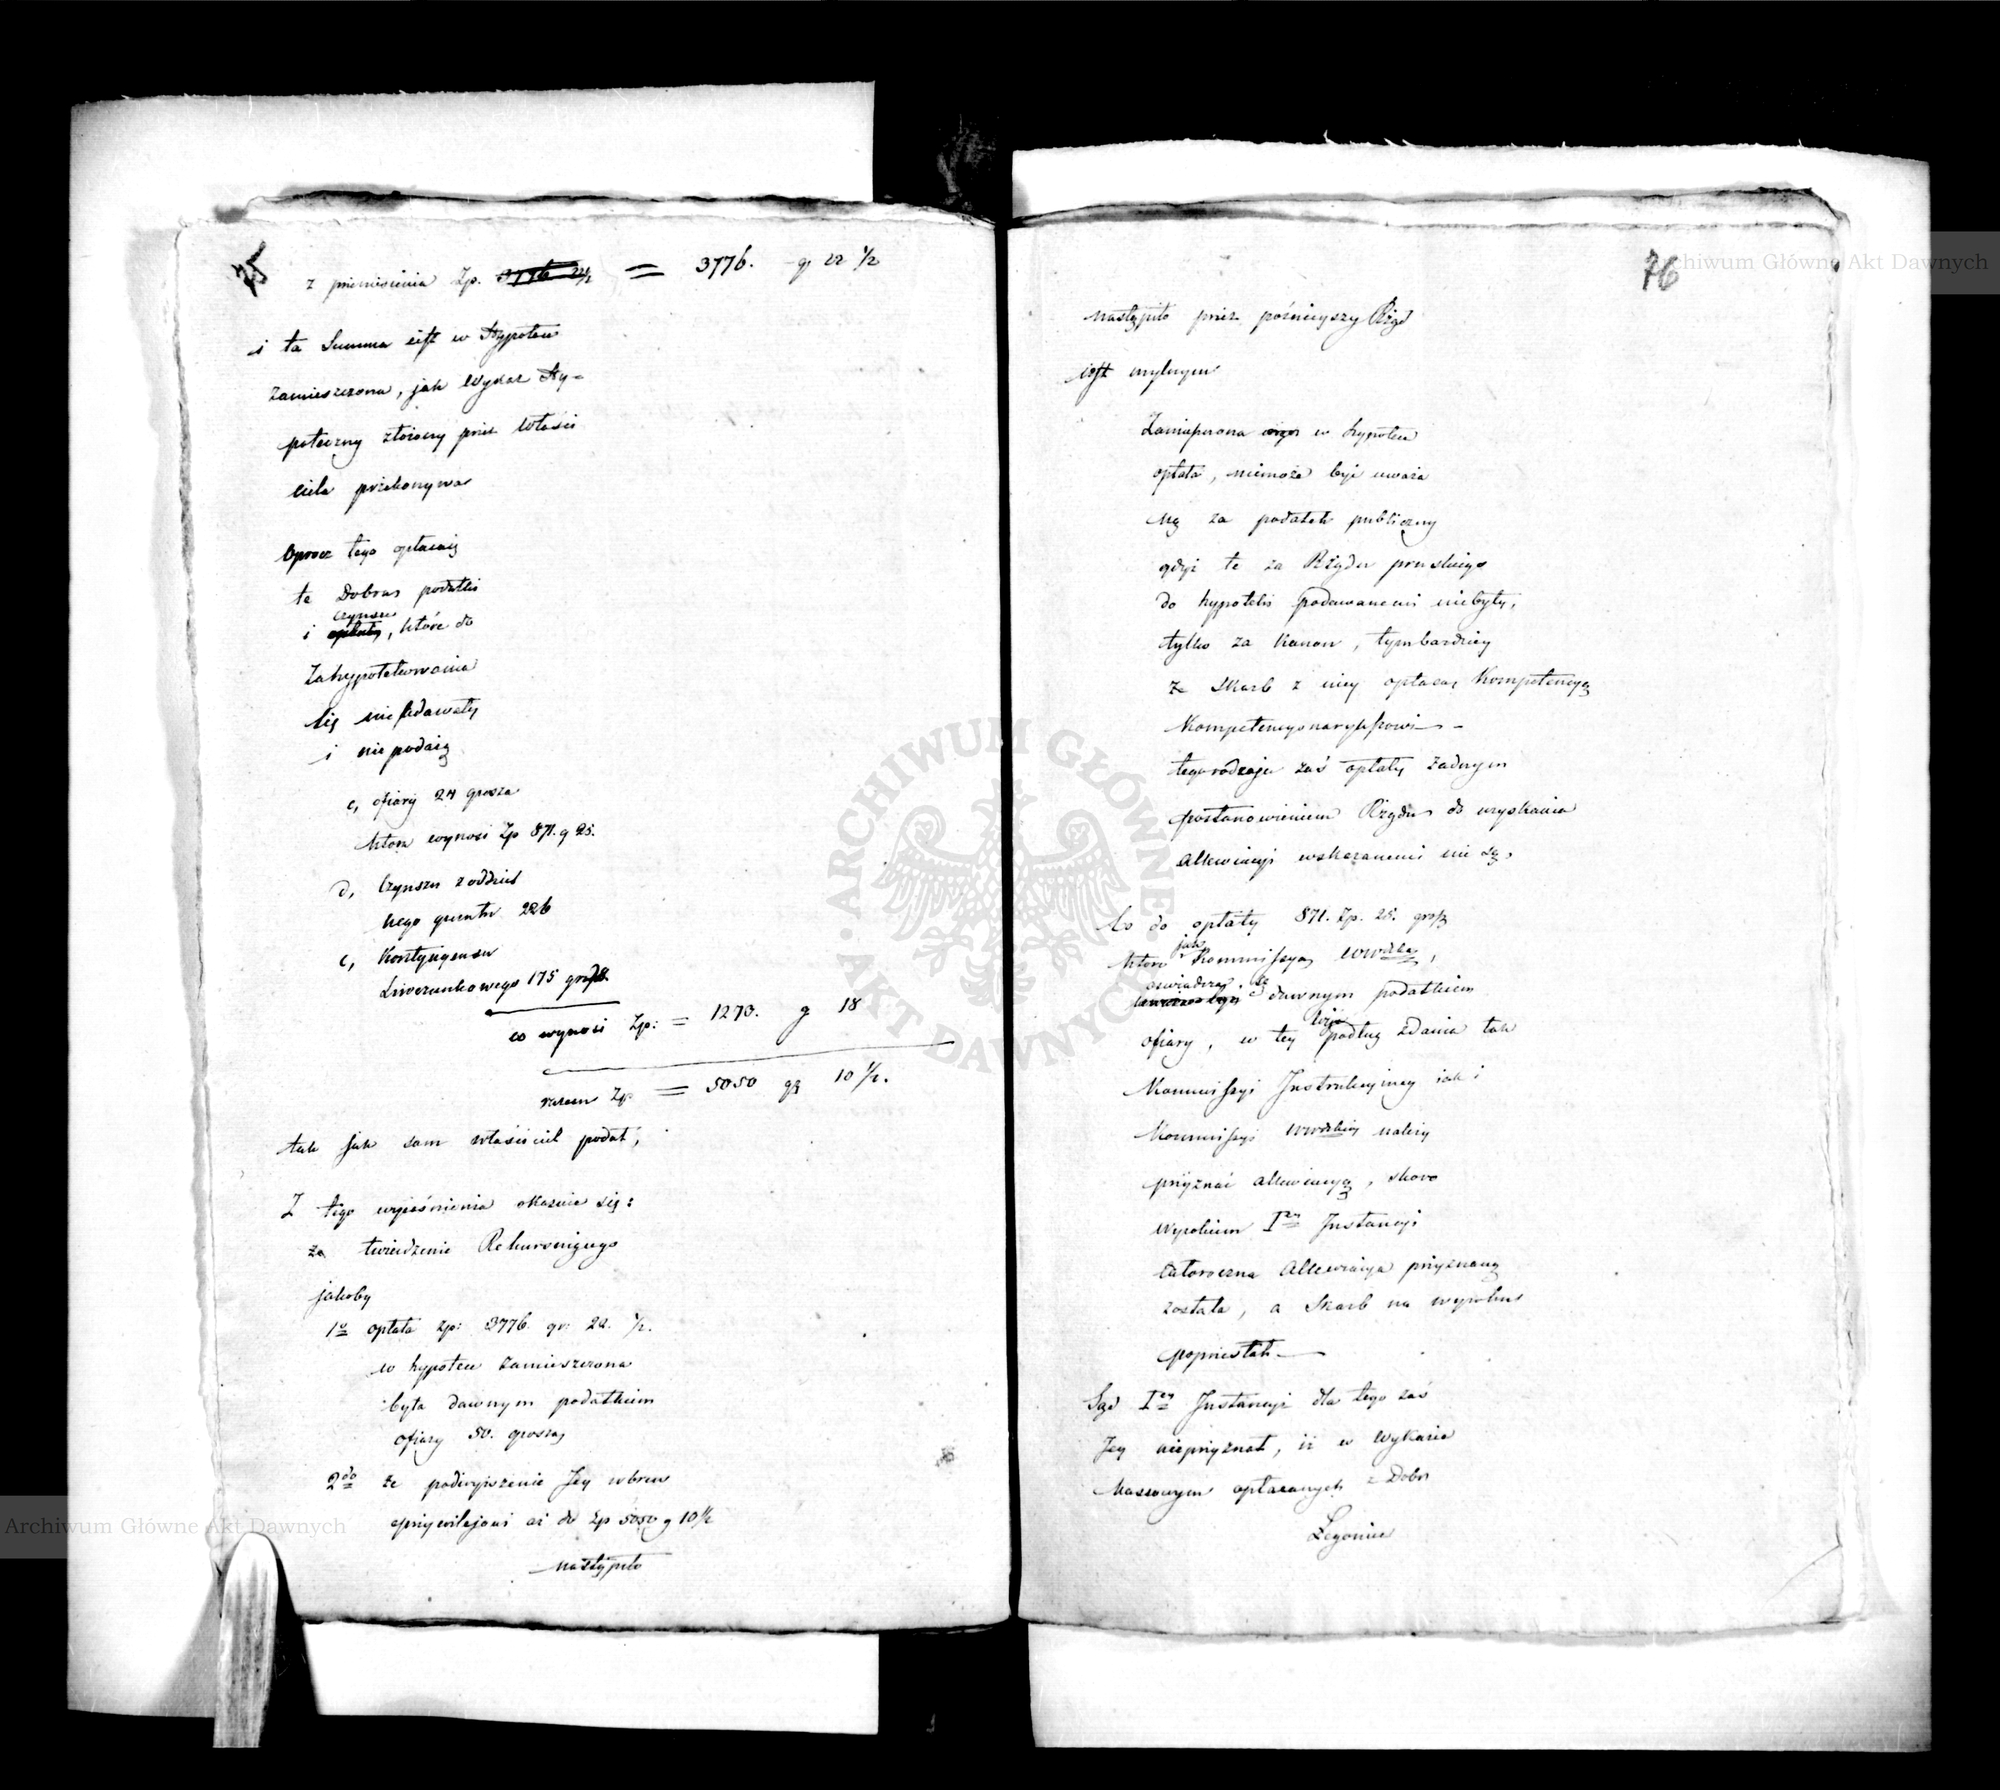 75
z przeniesienia Zp. 3776 22½ = 3776. g 22 ½
i ta Summa iest w Hypotece
zamieszczona, jak Wykaz Hy-
poteczny złożony przez Właści
ciela przekonywa
Oprocz tego opłacaią
te Dobra podatki
czynsze
i opłaty, które do
Zahypotekowania
się nie podawały
i nie podaią
c, ofiary 24 grosza
która wynosi Zp 871. g 25.
d, Czynszu z oddziel
nego gruntu 226
e, Kontyngensu
Liwerunkowego 175
co wynosi Zp: = 1273. g 18
razem Zp = 5050 g 10 ½.
tak jak sam właściciel podał,
Z tego wyjaśnienia okazuie się:
że twierdzenie Rekuruiącego
jakoby
1º opłata Zp: 3776. gr: 22. ½.
w hypotece zamieszczona
była dawnym podatkiem
ofiary 50. grosza
2do że podwyższenie Jey wbrew
przywilejowi aż do Zp 5050 g 10½
nastąpiło
76
nastąpiło przez poźnieyszy Rząd
iest mylnym
Zamieszczona w hypotece
opłata, niemoże być uważa
ną za podatek publiczny
gdyż te za Rządu pruskiego
do hypoteki podawanemi niebyły,
tylko za Kanon, tymbardziey
że Skarb z niey opłaca Kompetencyą
Kompetencyonaryuszowi –
tegorodzaju zaś opłaty żadnym
postanowieniem Rządu do uzyskania
allewiacyi wskazanemi nie są.
Co do opłaty 871. Zp. 25. grosz
jak
którą Kommissya Wwdzka,
oświadcza, że
dawnym podatkiem
ofiary, w tey podług zdania tak
Kommissyi Instrukcyiney iak i
Kommissyi Wwdzkiey należy
przyznać allewiacyą, skoro
wyrokiem Iey Instancyi
całoroczna Allewiacya przyznaną
została, a Skarb na wyroku
poprzestał –
Sąd Iey Instancyi dla tego zaś
Jey nieprzyznał, iż w Wykazie
Kassowym opłacanych z Dobr
Łegonice
Archiwum Główne Akt Dawnych
Archiwum Główne Akt Dawnych
ARCHIWUM GŁÓWNE AKT DAWNYCH